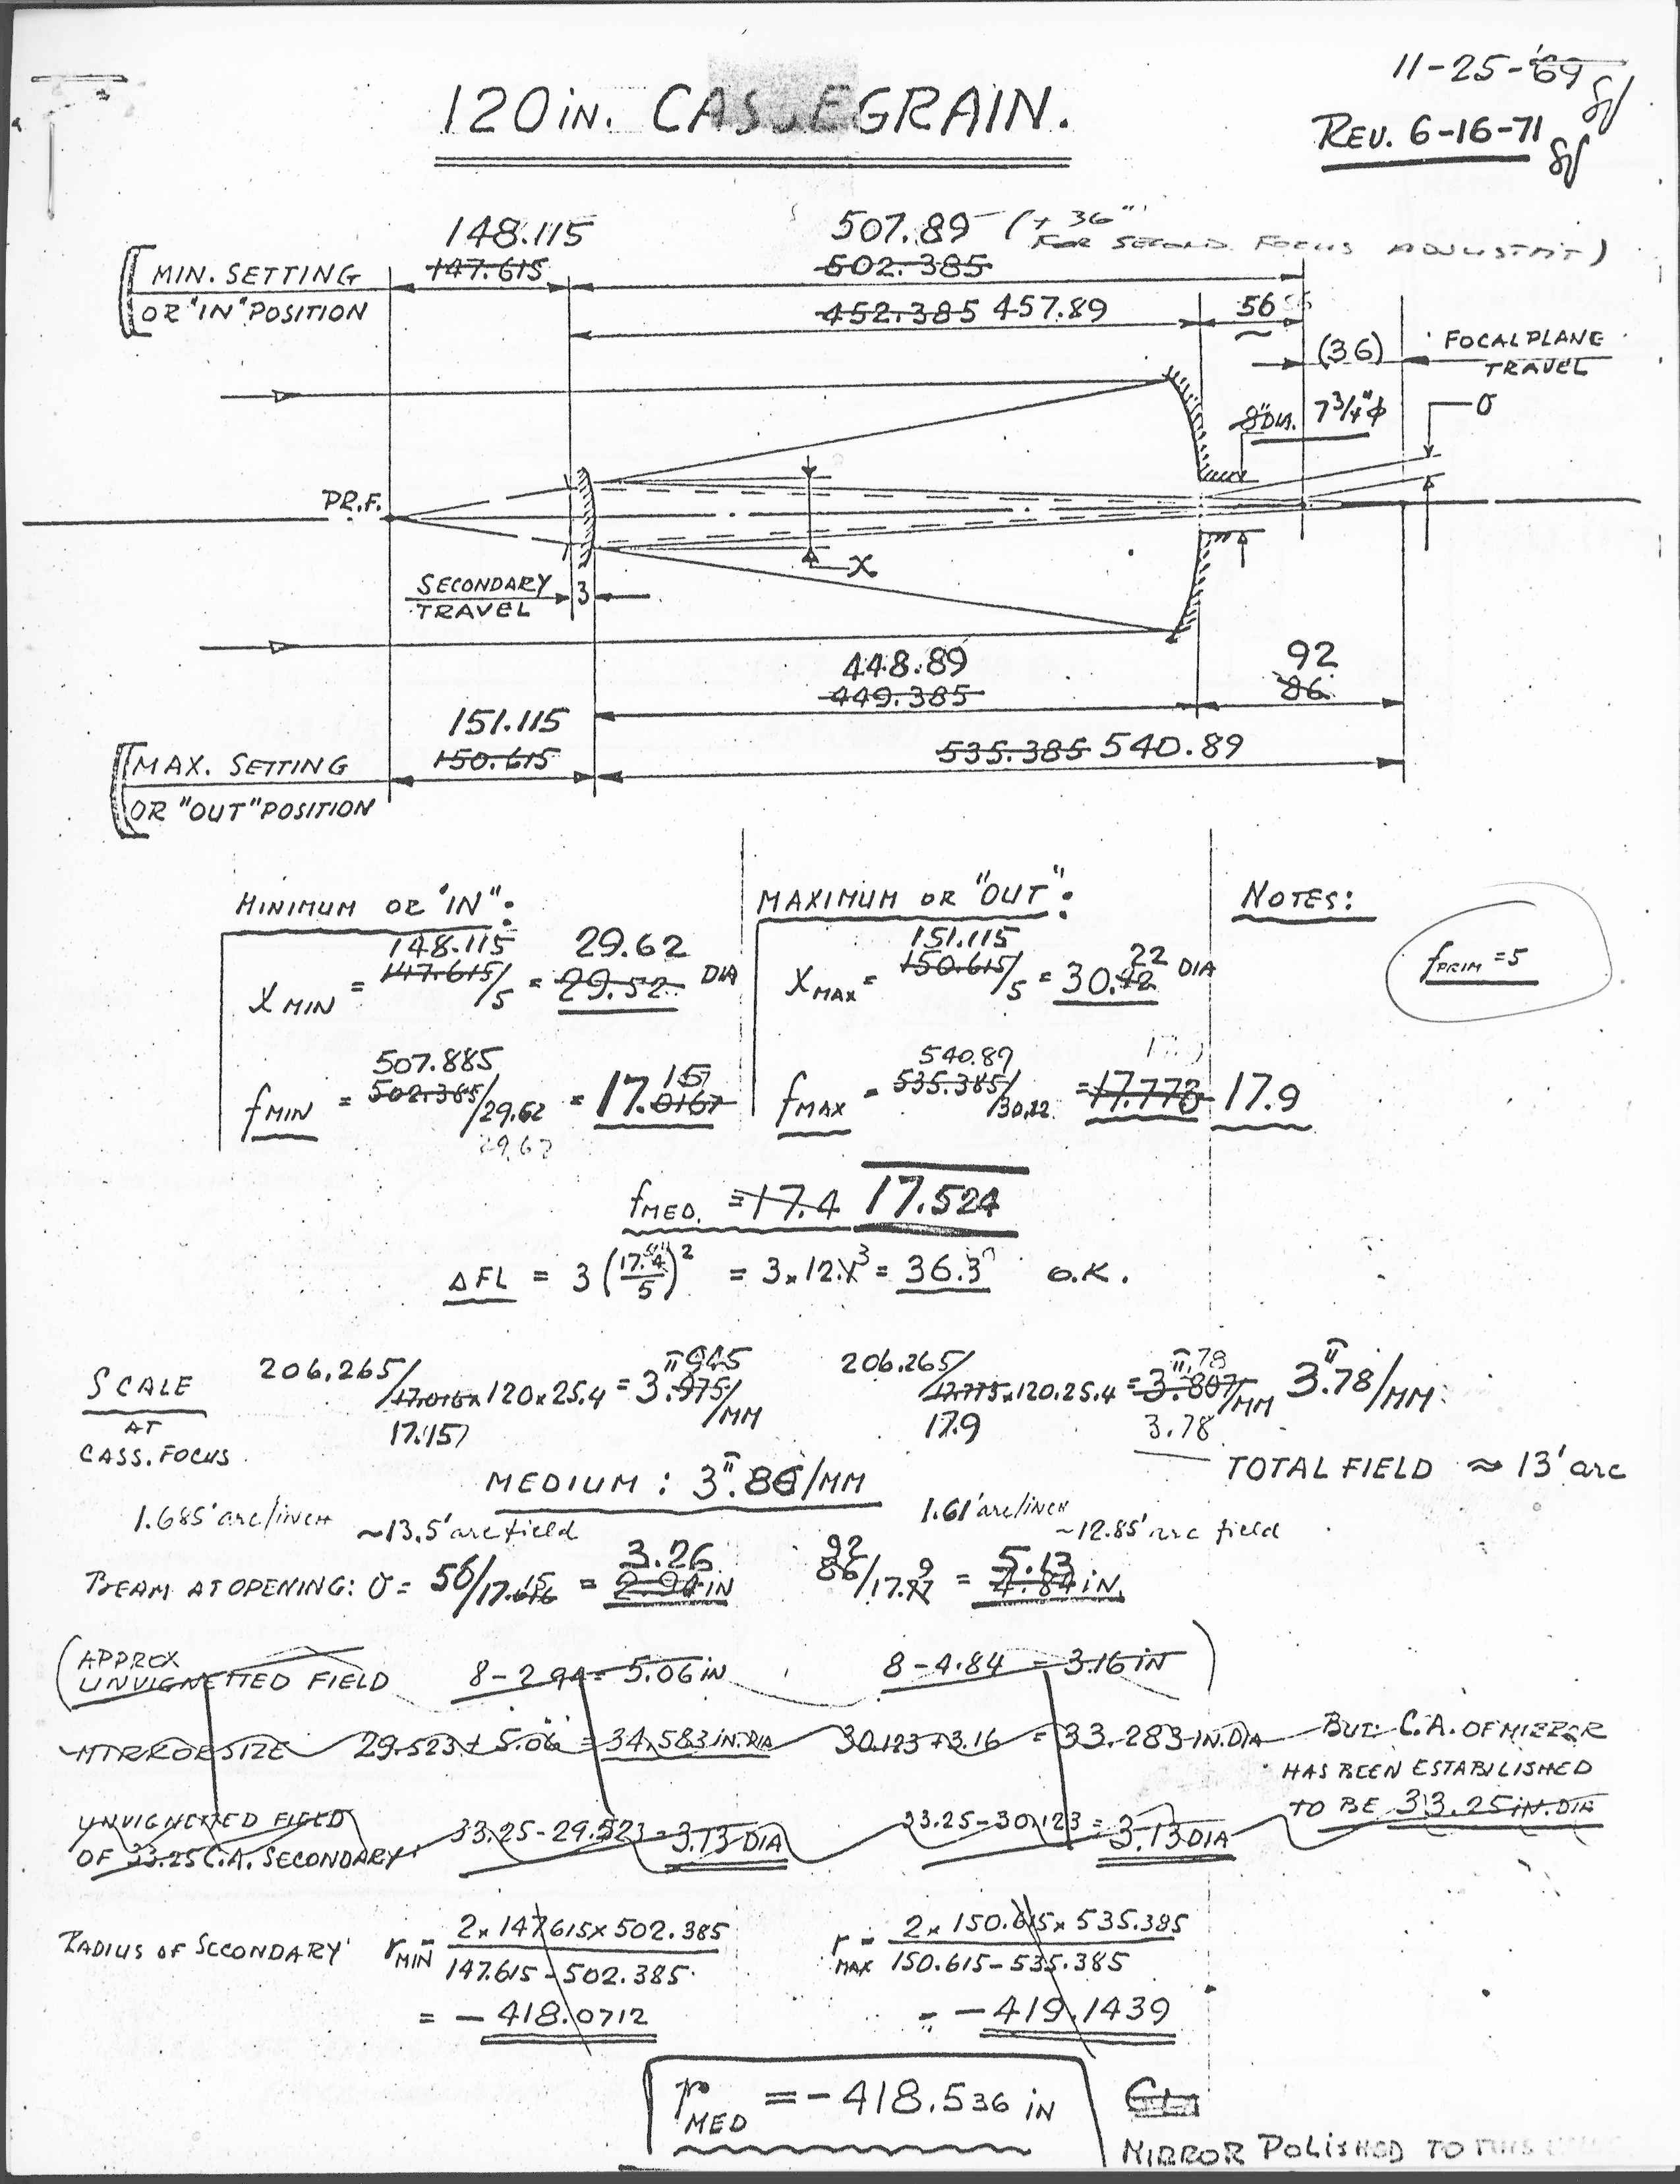 11-25-'69
120 in. CASSEGRAIN.
REV. 6-16-71
148.115
507.89 (+ 36"
FOR SECOND FOCUS ADJUSTM'T)
147.615
502.385
MIN. SETTING
OR "IN" POSITION
452.385 457.89
56
(36)
FOCAL PLANE
TRAVEL
8" DIA. 7 3/4" ϕ
σ
PR.F.
X
SECONDARY
TRAVEL
3
448.89
449.385
92
86
151.115
150.615
535.385 540.89
MAX. SETTING
OR "OUT" POSITION
MINIMUM OR "IN":
MAXIMUM OR "OUT":
NOTES:
148.115 29.62
X MIN = 147.615/5 = 29.52 DIA
151.115 22
X MAX = 150.615/5 = 30.12 DIA
fPRIM = 5
507.885 157
fMIN = 502.385/29.62 = 17.0167
29.62
540.89
fMAX = 535.385/30.22 = 17.773 17.9
fMED. = 17.4 17.524
ΔFL = 3 (17.4/5)² = 3 x 12.1 = 36.3" O.K.
SCALE
AT
CASS. FOCUS
206,265/17.016 x 120 x 25.4 = 3".975/MM
945
17.157
206.265/17.775 x 120.25.4 = 3".807/MM 3".78/MM
17.9
3.78
TOTAL FIELD ≈ 13' arc
MEDIUM : 3".86/MM
1.685' arc/inch ~13.5' arc field
1.61' arc/inch ~12.85' arc field
3.26
BEAM AT OPENING: σ = 50/17.016 = 2.94 IN
92 9 5.13
86/17.77 = 4.84 IN.
(APPROX
UNVIGNETTED FIELD 8 - 2.94 = 5.06 IN 8 - 4.84 = 3.16 IN)
MIRROR SIZE 29.523 + 5.06 = 34.583 IN. DIA 30.123 + 3.16 = 33.283 IN. DIA
BUT C.A. OF MIRROR
HAS BEEN ESTABILISHED
TO BE 33.25 IN. DIA
UNVIGNETTED FIELD
OF 33.25 C.A. SECONDARY 33.25 - 29.523 = 3.13 DIA 33.25 - 30.123 = 3.13 DIA
RADIUS OF SECONDARY
r MIN = 2 x 147.615 x 502.385
147.615 - 502.385
= - 418.0712
r MAX = 2 x 150.615 x 535.385
150.615 - 535.385
= - 419.1439
r MED = - 418.536 IN
MIRROR POLISHED TO THIS